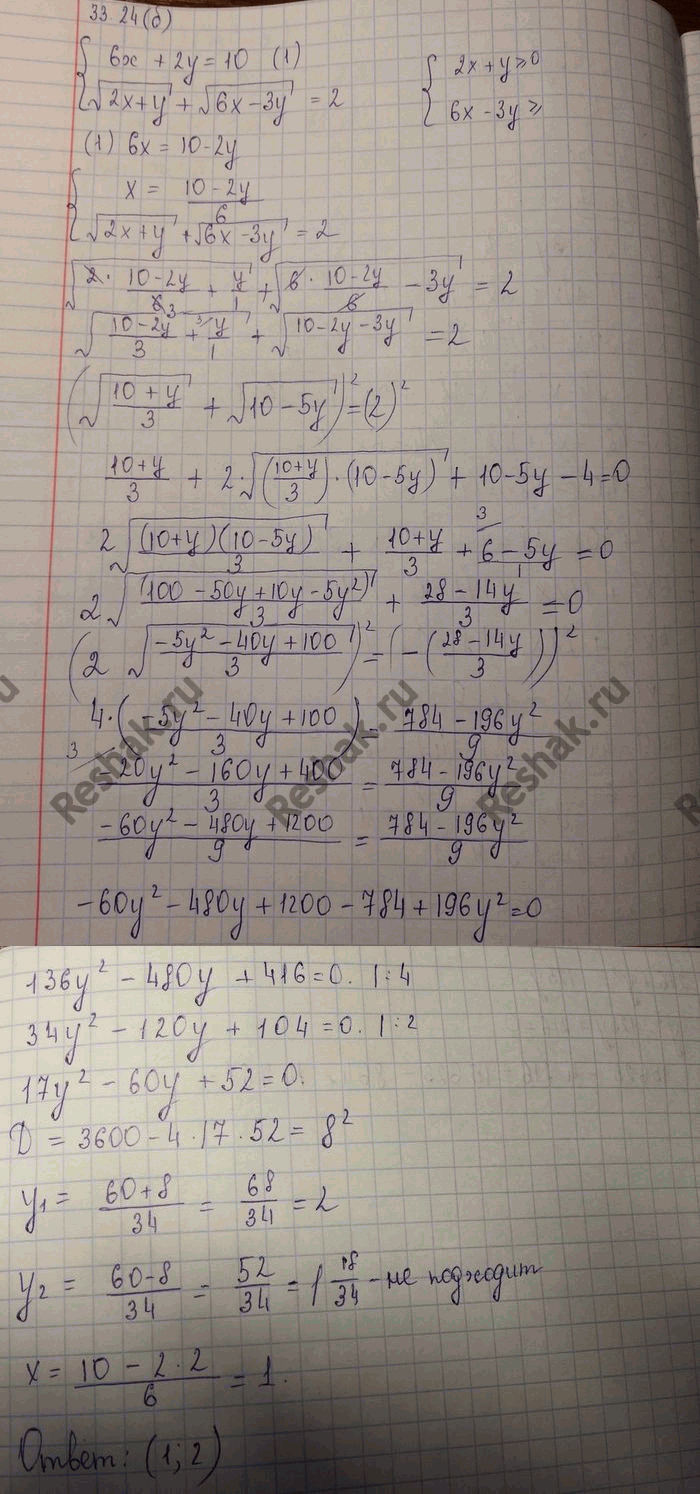 33.24(б)
{ 6x + 2y = 10 (1)
{ √(2x+y) + √(6x-3y) = 2
{ 2x+y≥0
{ 6x-3y≥
(1) 6x = 10-2y
{ x = (10-2y)/6
{ √(2x+y) + √(6x-3y) = 2
√(2·(10-2y)/6 3 + y/1) + √(6·(10-2y)/6 - 3y) = 2
√((10-2y)/3 + ³y/1) + √(10-2y-3y) = 2
(√((10+y)/3) + √(10-5y))² = (2)²
(10+y)/3 + 2·√(((10+y)/3)·(10-5y)) + 10-5y-4=0
2√((10+y)(10-5y)/3) + (10+y)/3 + ³(6-5y)/1 = 0
2√((100-50y+10y-5y²)/3) + (28-14y)/3 = 0
(2 √((-5y²-40y+100)/3))² = (-((28-14y)/3))²
4·((-5y²-40y+100)/3) = (784-196y²)/9
3 (-20y²-160y+400)/3 = (784-196y²)/9
(-60y²-480y+1200)/9 = (784-196y²)/9
-60y²-480y+1200-784+196y²=0
136y² - 480y + 416=0. |:4
34y² - 120y + 104 =0. |:2
17y² - 60y + 52=0.
D = 3600-4·17·52= 8²
y₁ = (60+8)/34 = 68/34 = 2
y₂ = (60-8)/34 = 52/34 = 1 18/34 - не подходит
x = (10-2·2)/6 = 1.
Ответ: (1; 2)
Reshak.ru
Reshak.ru
Reshak.ru